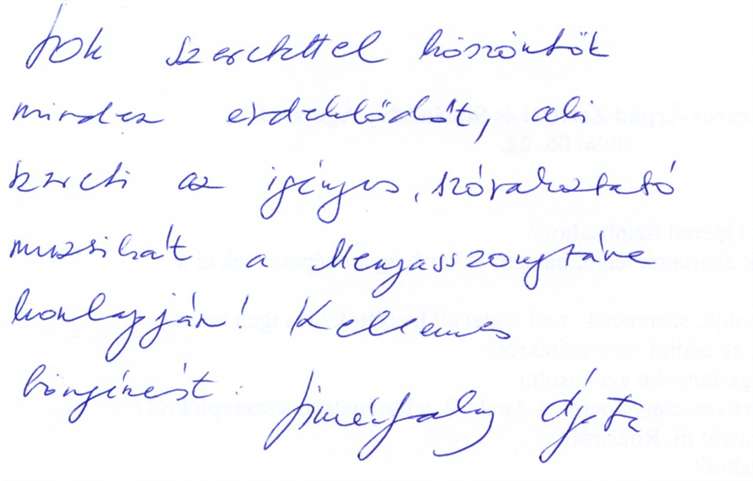 Sok szeretettel köszöntök
minden érdeklődőt, aki
szereti az igényes, szórakoztató
muzsikát a Menyasszonytánc
honlapján! Kellemes
böngészést: